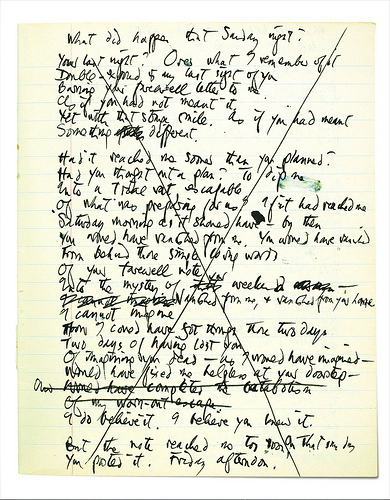 What did happen that Sunday night?
Your last night? Over what I remember of it
Double-exposed my last sight of you
Burning your farewell letter to me
As if you had not meant it
Yet with that strange smile. As if you had meant
Something different.
Had it reached me sooner than you planned?
Had you thought out a plan? to
Into a escapable
Of what was preparing for us? If it had reached me
Saturday morning as it should have – by then
You would have vanished from me. You would have vanished
From behind those simple loving words
Of your farewell note
Into the mystery of weekend
vanished from me, & vanished from your house
I cannot imagine
How I could have got through those two days
Two days of having lost you
Of imagining you dead – as I would have imagined –
Would have fixed me helpless at your doorstep –
Would have completed the
Of my worn-out escape
I do believe it. I believe you knew it.
But the note reached me too soon that one day
You posted it. Friday afternoon.